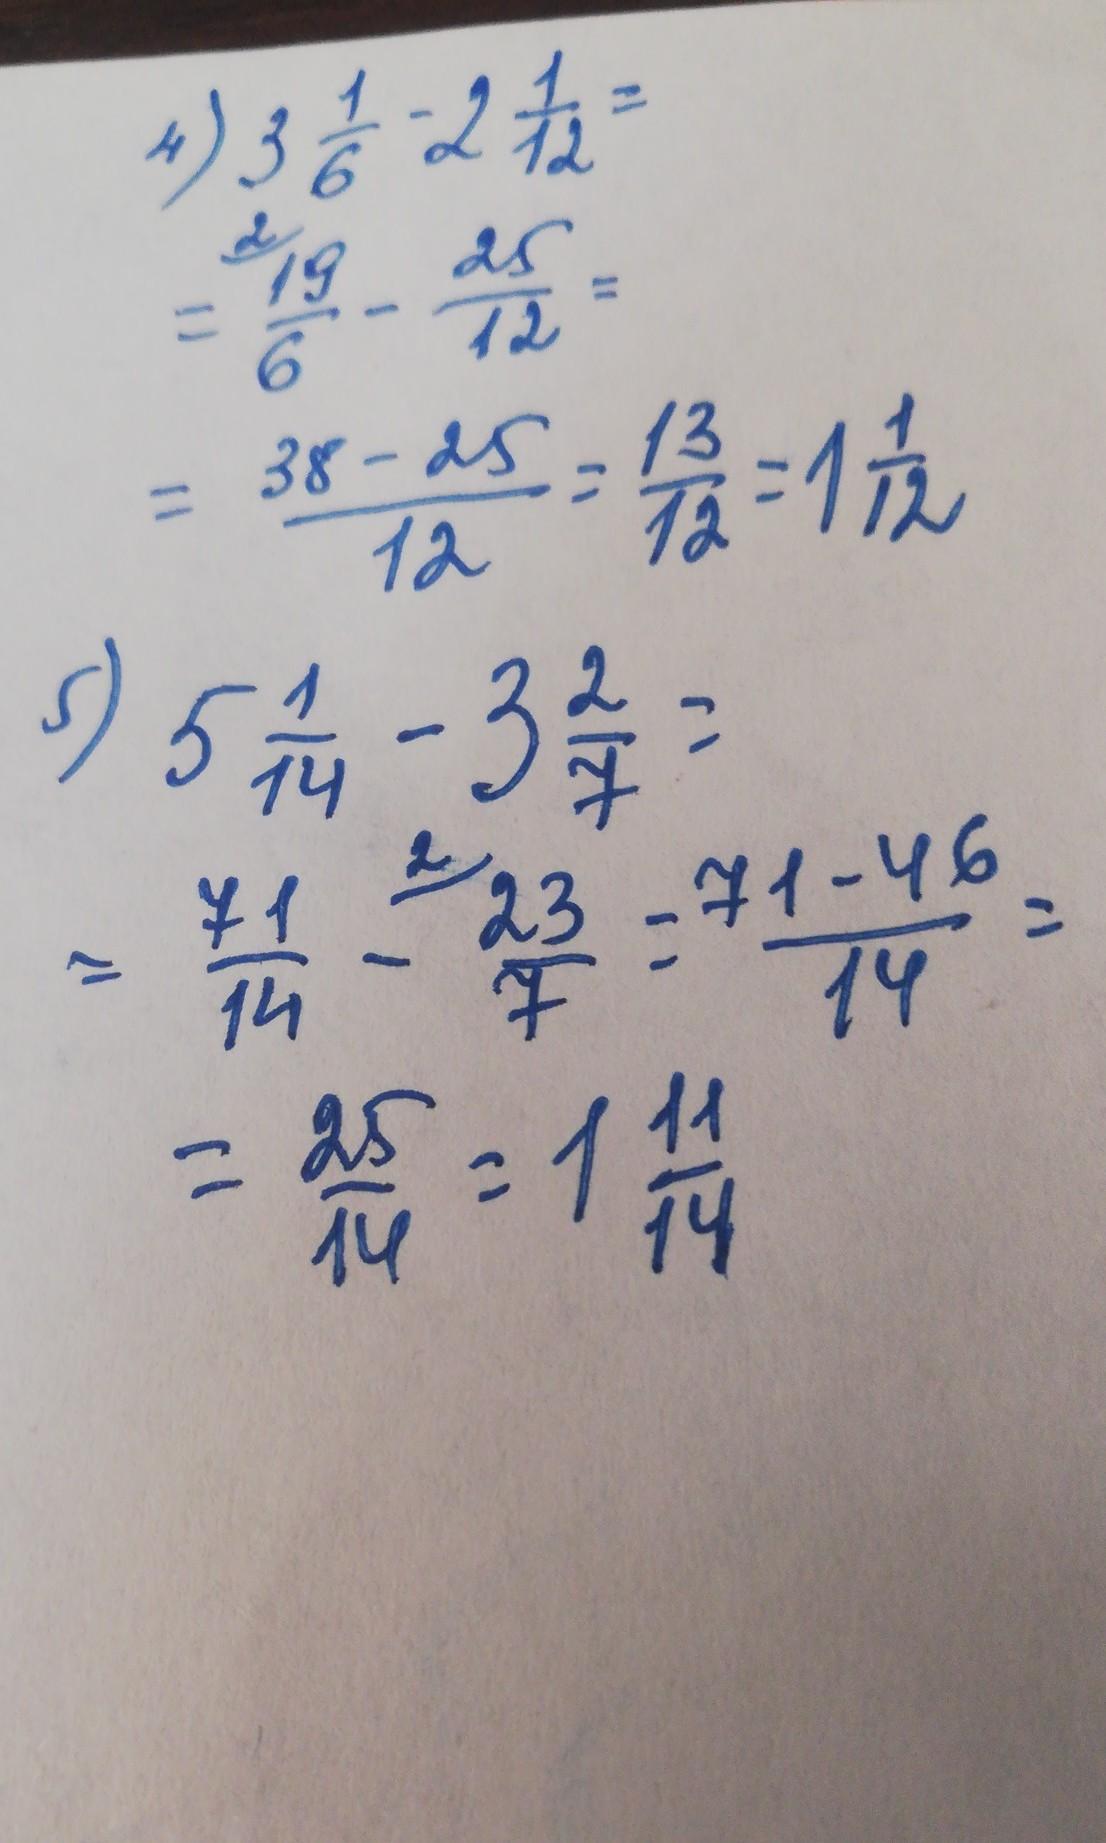 4) 3 1/6 - 2 1/12 =
= ²/19/6 - 25/12 =
= 38 - 25/12 = 13/12 = 1 1/12
5) 5 1/14 - 3 2/7 =
= 71/14 - ²/23/7 = 71 - 46/14 =
= 25/14 = 1 11/14